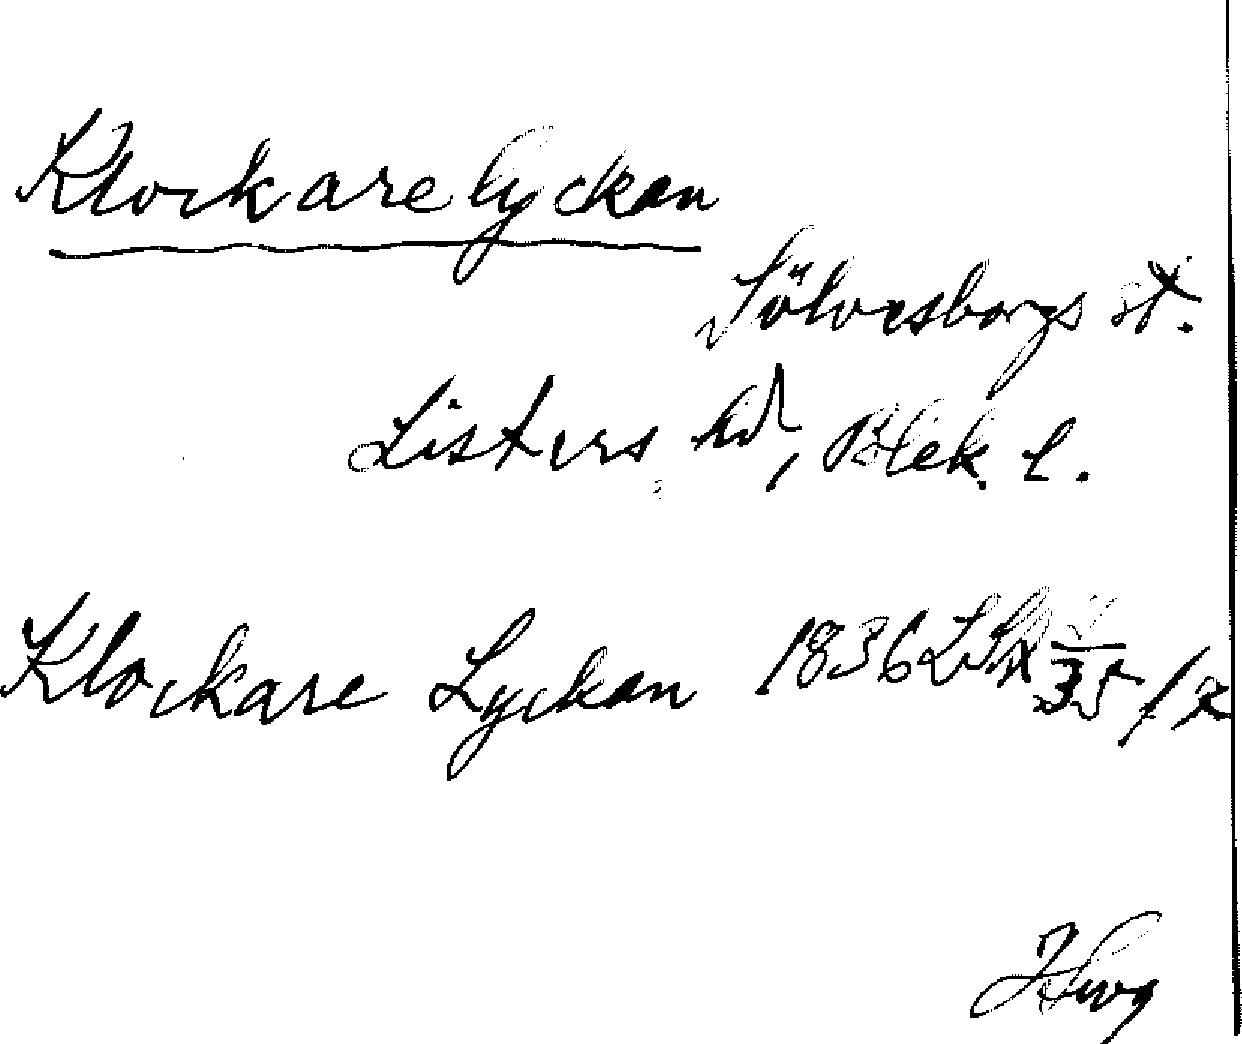 Klockarelyckan
Sölvesborgs st.
Listers hd, Blek. l.
Klockare Lyckan 1836 LSA